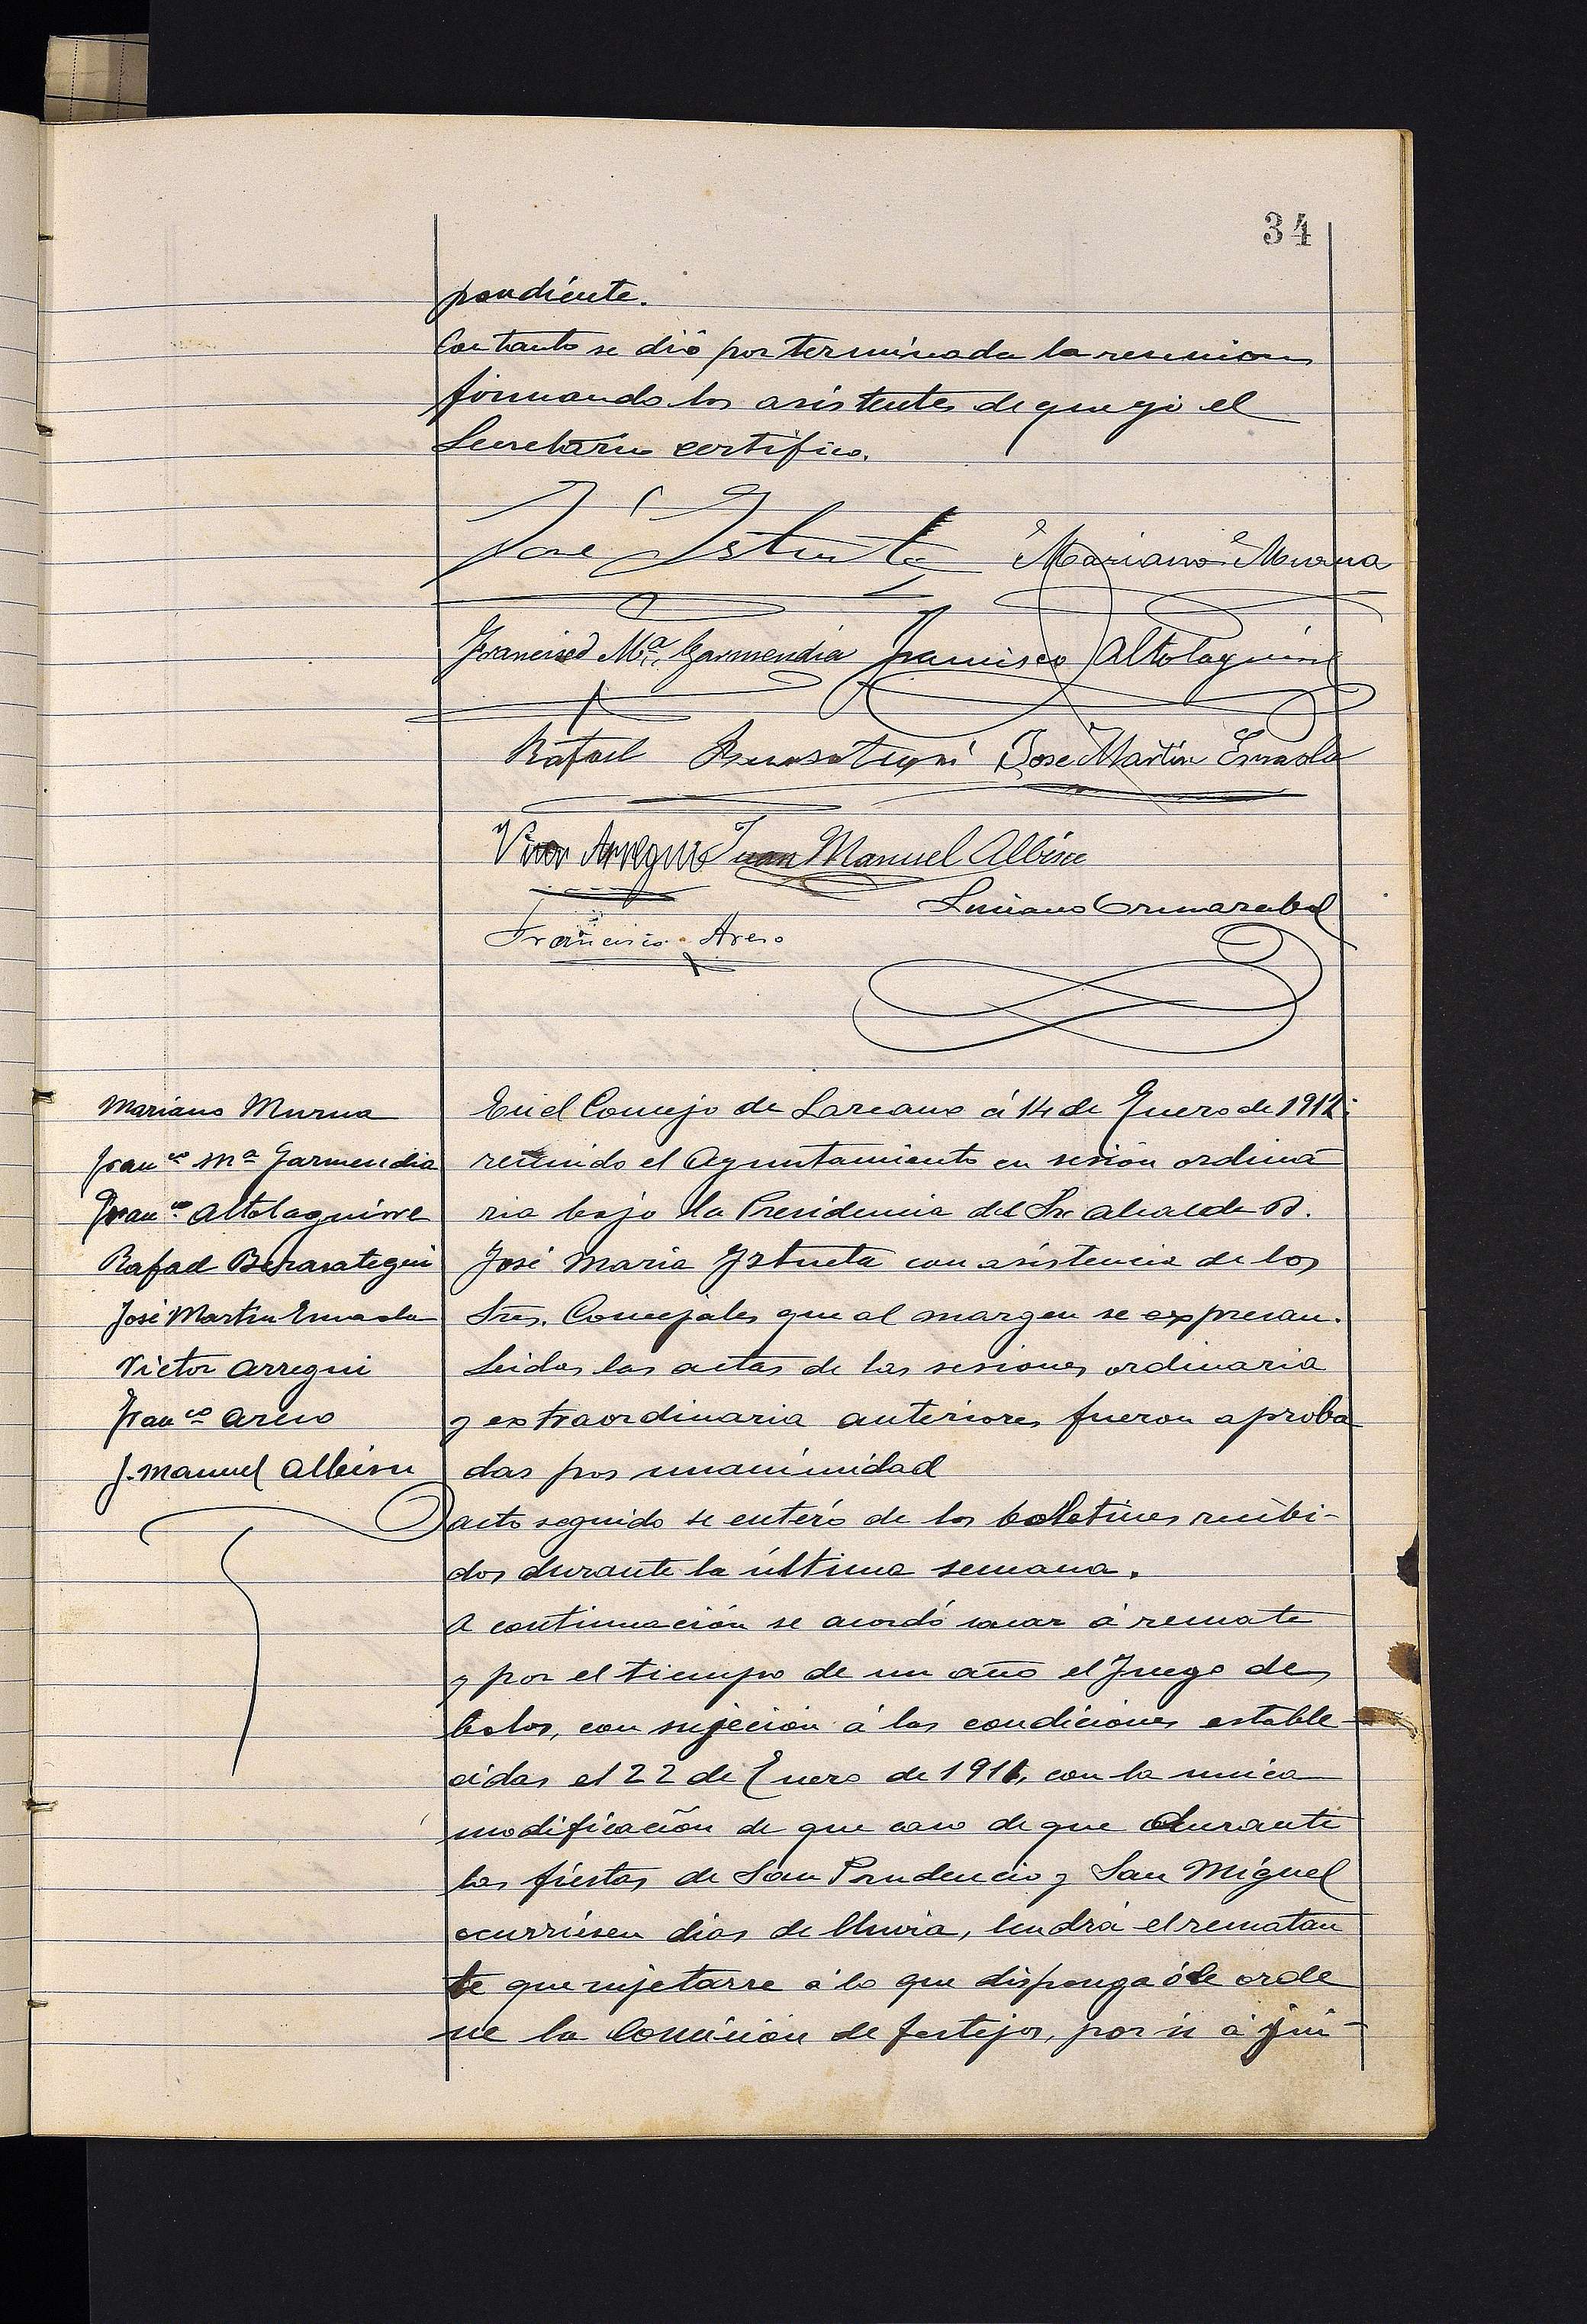 34
pondiente.
Con tanto se dió por terminada la reunion
firmando los asistentes de que yo el
Secretario certifico.
José Istueta Mariano Murua
Francisco Mª. Garmendia Francisco Altolaguirre
Rafael Berasategui Jose Martin Esnaola
Victor Arregui Juan Manuel Albisu
Luciano Ormazabal
Francisco Areso
Mariano Murua
Franco Ma Garmendia
Franco Altolaguirre
Rafael Berasategui
José Martin Esnaola
Victor Arregui
Franco Areso
J. Manuel Albisu
En el Concejo de Lazcano á 14 de Enero de 1912:
reunido el Ayuntamiento en sesión ordina
ria bajo la Presidencia del Sr. Alcalde D.
José Maria Istueta con asistencia de los
Sres. Concejales que al margen se expresan.
Leidas las actas de las sesiones ordinaria
y extraordinaria anteriores fueron aproba
das por unanimidad
Acto seguido se enteró de los boletines recibi-
dos durante la última semana.
A continuación se acordó sacar á remate
y por el tiempo de un año el Juego de
bolos, con sujeción á las condiciones estable-
cidas el 22 de Enero de 1911, con la unica
modificación de que caso de que durante
las fiestas de San Prudencio y San Miguel
ocurriesen dias de lluvia, tendrá el rematan
te que sujetarse á lo que disponga ó le orde
ne la Comisión de festejos, por si á jui-